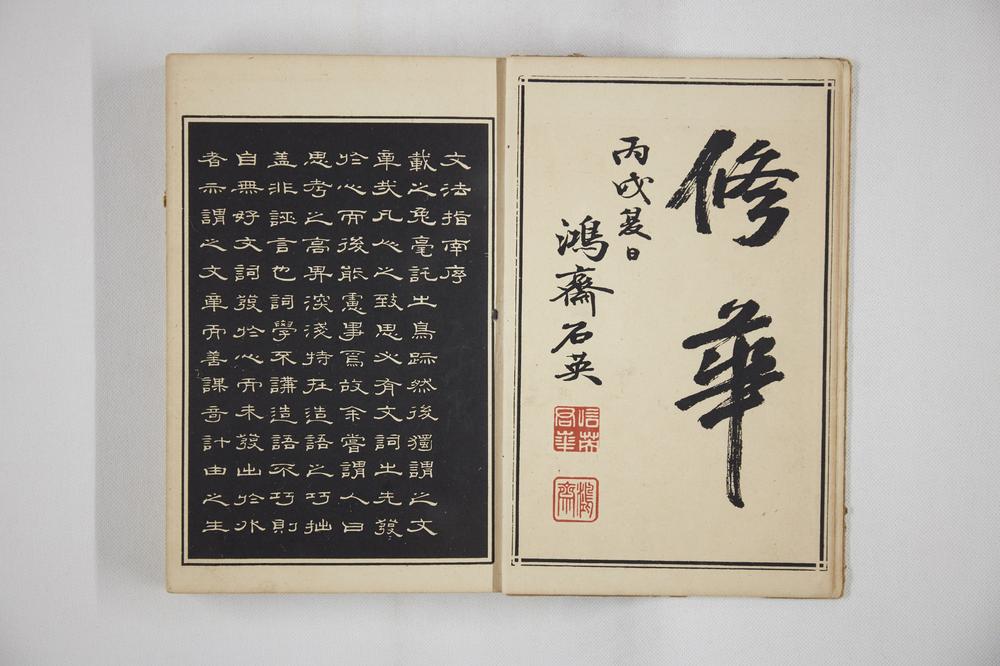 修華
丙戌夏日
鴻齋石英
信英君華
鴻齋
文法指南序
載之兔毫託之鳥跡然後獨謂之文
章哉凡心之致思必有文詞之先發
於心而後能慮事焉故余嘗謂人曰
思考之高卑深淺持在造語之巧拙
蓋非誣言也詞學不講造語不巧則
自無好文詞發於心而未發出於外
者亦謂之文章而善謀奇計由之生